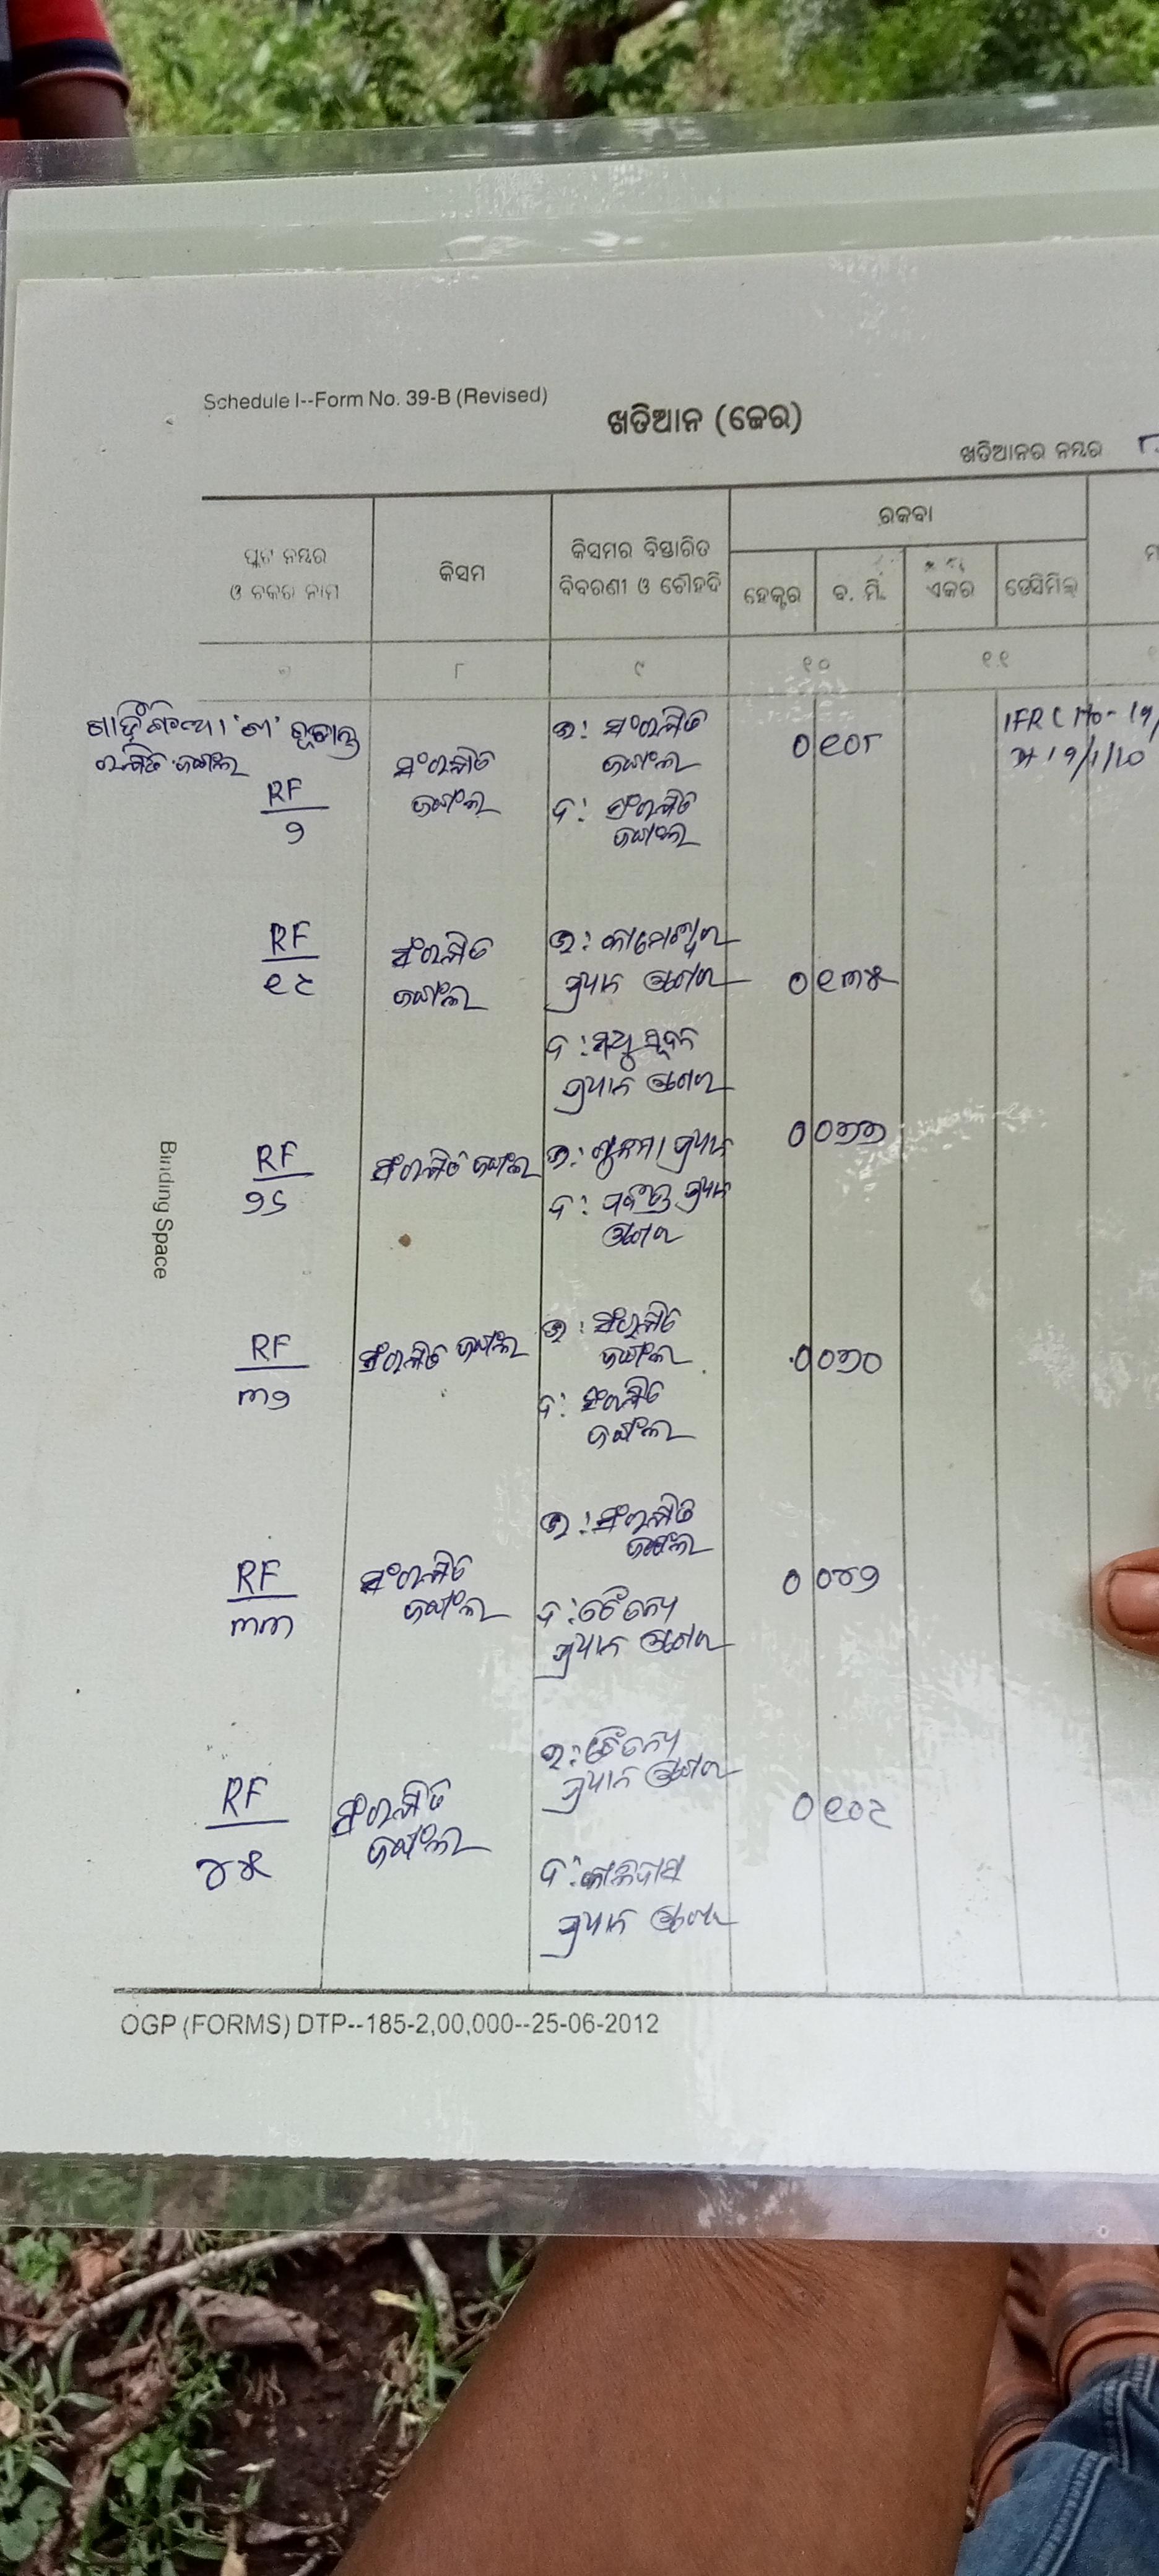 Schedule I--Form No. 39-B (Revised)
ଖତିଆନ (ଜେର)
ଖତିଆନର ନମ୍ବର ୮
ପ୍ଲଟ ନମ୍ବର
ଓ ଚକର ନାମ
କିସମ
କିସମର ବିସ୍ତାରିତ
ବିବରଣୀ ଓ ଚୌହଦି
ରକବା
ହେକ୍ଟର
ବ. ମି.
ଏକର
ଡେସିମିଲ୍
୭
୮
୯
୧୦
୧୧
ରକ୍ଷିତ ଜଙ୍ଗଲ
RF
୨
ସଂରକ୍ଷିତ
ଜଙ୍ଗଲ
ଉ: ସଂରକ୍ଷିତ
ଜଙ୍ଗଲ
ଦ: ସଂରକ୍ଷିତ
ଜଙ୍ଗଲ
୦ ୧୦୮
IFRC No-
RF
୧୪
ସଂରକ୍ଷିତ
ଜଙ୍ଗଲ
ଉ:
ପ୍ରଧାନ
ଦ: ମଧୁସୂଦନ
ପ୍ରଧାନ
୦ ୧୩୫
RF
୨୬
ସଂରକ୍ଷିତ ଜଙ୍ଗଲ
ଉ: ପ୍ରଧାନ
ଦ: ପ୍ରଧାନ
୦ ୦୭୭
RF
୩୨
ସଂରକ୍ଷିତ ଜଙ୍ଗଲ
ଉ: ସଂରକ୍ଷିତ
ଜଙ୍ଗଲ
ଦ: ସଂରକ୍ଷିତ
ଜଙ୍ଗଲ
୦ ୦୭୦
RF
୩୩
ସଂରକ୍ଷିତ
ଜଙ୍ଗଲ
ଉ: ସଂରକ୍ଷିତ
ଜଙ୍ଗଲ
ଦ: ଚୈତନ୍ୟ
ପ୍ରଧାନ
୦ ୦୪୨
RF
୪୫
ସଂରକ୍ଷିତ
ଜଙ୍ଗଲ
ଉ: ଚୈତନ୍ୟ
ପ୍ରଧାନ
ଦ: କାଳିଦାସ
ପ୍ରଧାନ
୦ ୧୦୪
Binding Space
OGP (FORMS) DTP--185-2,00,000--25-06-2012